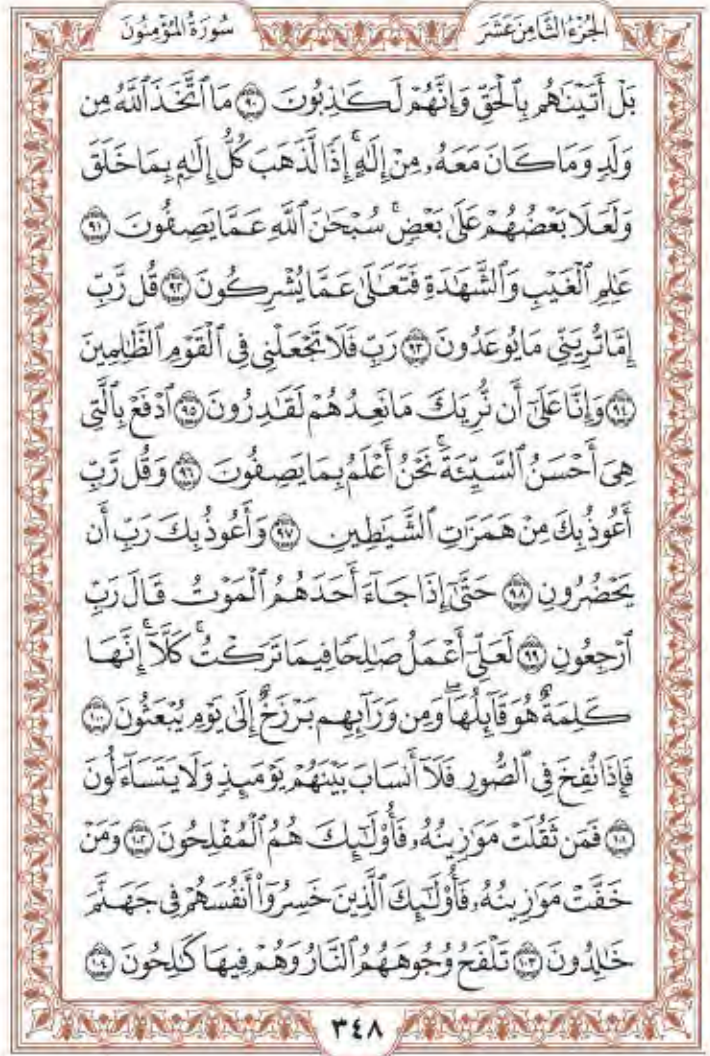 الجُزْءُ الثَّامِنَ عَشَرَ
سُورَةُ المُؤْمِنُونَ
بَلْ أَتَيْنَٰهُم بِٱلْحَقِّ وَإِنَّهُمْ لَكَٰذِبُونَ ٩٠ مَا ٱتَّخَذَ ٱللَّهُ مِن
وَلَدٍ وَمَا كَانَ مَعَهُۥ مِنْ إِلَٰهٍ ۚ إِذًا لَّذَهَبَ كُلُّ إِلَٰهٍۭ بِمَا خَلَقَ
وَلَعَلَا بَعْضُهُمْ عَلَىٰ بَعْضٍ ۚ سُبْحَٰنَ ٱللَّهِ عَمَّا يَصِفُونَ ٩١
عَٰلِمِ ٱلْغَيْبِ وَٱلشَّهَٰدَةِ فَتَعَٰلَىٰ عَمَّا يُشْرِكُونَ ٩٢ قُل رَّبِّ
إِمَّا تُرِيَنِّي مَا يُوعَدُونَ ٩٣ رَبِّ فَلَا تَجْعَلْنِي فِي ٱلْقَوْمِ ٱلظَّٰلِمِينَ
٩٤ وَإِنَّا عَلَىٰٓ أَن نُّرِيَكَ مَا نَعِدُهُمْ لَقَٰدِرُونَ ٩٥ ٱدْفَعْ بِٱلَّتِي
هِيَ أَحْسَنُ ٱلسَّيِّئَةَ ۚ نَحْنُ أَعْلَمُ بِمَا يَصِفُونَ ٩٦ وَقُل رَّبِّ
أَعُوذُ بِكَ مِنْ هَمَزَٰتِ ٱلشَّيَٰطِينِ ٩٧ وَأَعُوذُ بِكَ رَبِّ أَن
يَحْضُرُونِ ٩٨ حَتَّىٰٓ إِذَا جَآءَ أَحَدَهُمُ ٱلْمَوْتُ قَالَ رَبِّ
ٱرْجِعُونِ ٩٩ لَعَلِّيٓ أَعْمَلُ صَٰلِحًا فِيمَا تَرَكْتُ ۚ كَلَّآ ۚ إِنَّهَا
كَلِمَةٌ هُوَ قَآئِلُهَا ۖ وَمِن وَرَآئِهِم بَرْزَخٌ إِلَىٰ يَوْمِ يُبْعَثُونَ ١٠٠
فَإِذَا نُفِخَ فِي ٱلصُّورِ فَلَآ أَنسَابَ بَيْنَهُمْ يَوْمَئِذٍ وَلَا يَتَسَآءَلُونَ
١٠١ فَمَن ثَقُلَتْ مَوَٰزِينُهُۥ فَأُو۟لَٰٓئِكَ هُمُ ٱلْمُفْلِحُونَ ١٠٢ وَمَنْ
خَفَّتْ مَوَٰزِينُهُۥ فَأُو۟لَٰٓئِكَ ٱلَّذِينَ خَسِرُوٓا۟ أَنفُسَهُمْ فِي جَهَنَّمَ
خَٰلِدُونَ ١٠٣ تَلْفَحُ وُجُوهَهُمُ ٱلنَّارُ وَهُمْ فِيهَا كَٰلِحُونَ ١٠٤
٣٤٨